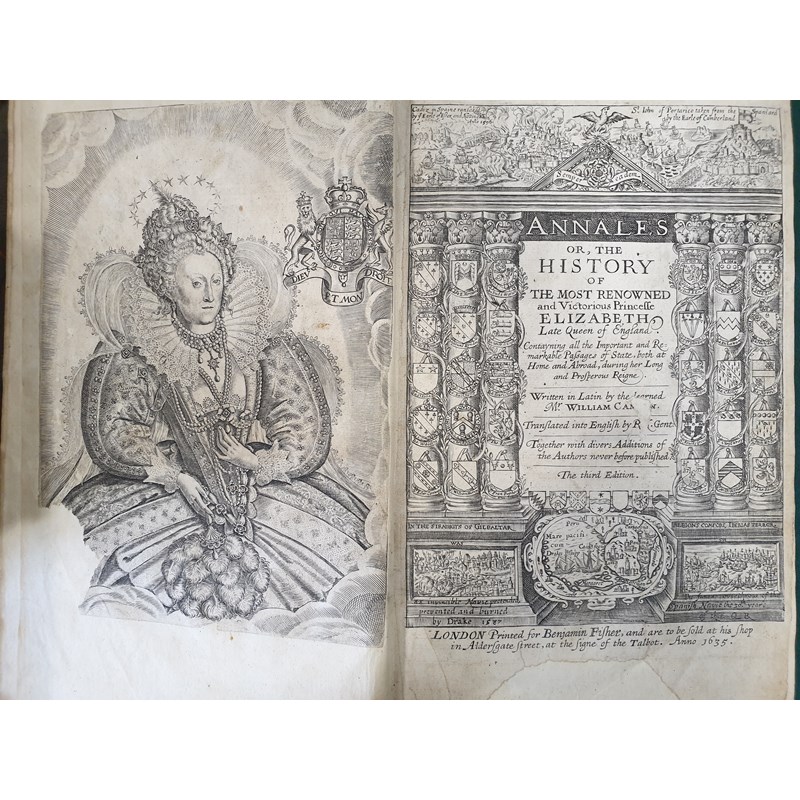 DIEV
ET MON
DROIT
Cades in Spaine
St. John of Portorico taken from the Spaniards
by the Earle of Cumberland
Semper eadem
ANNALES
OR, THE
HISTORY
OF
THE MOST RENOWNED
and Victorious Princesse
ELIZABETH,
Late Queen of England.
Contayning all the Important and Re-
markable Passages of State, both at
Home and Abroad, during her Long
and Prosperous Reigne.
Written in Latin by the learned
Mr. WILLIAM
Translated into English by R. Gent.
Together with divers Additions of
the Authors never before published.
The third Edition.
IN THE STRAIGTS OF GILBALTAR
WAR
Peru
Mare pacifi-
cum
Drake
an invincible Navie pretended
prevented and burned
by Drake 1587
Spanish Navie
LONDON Printed for Benjamin Fisher, and are to be sold at his shop
in Aldersgate street, at the signe of the Talbot. Anno 1635.